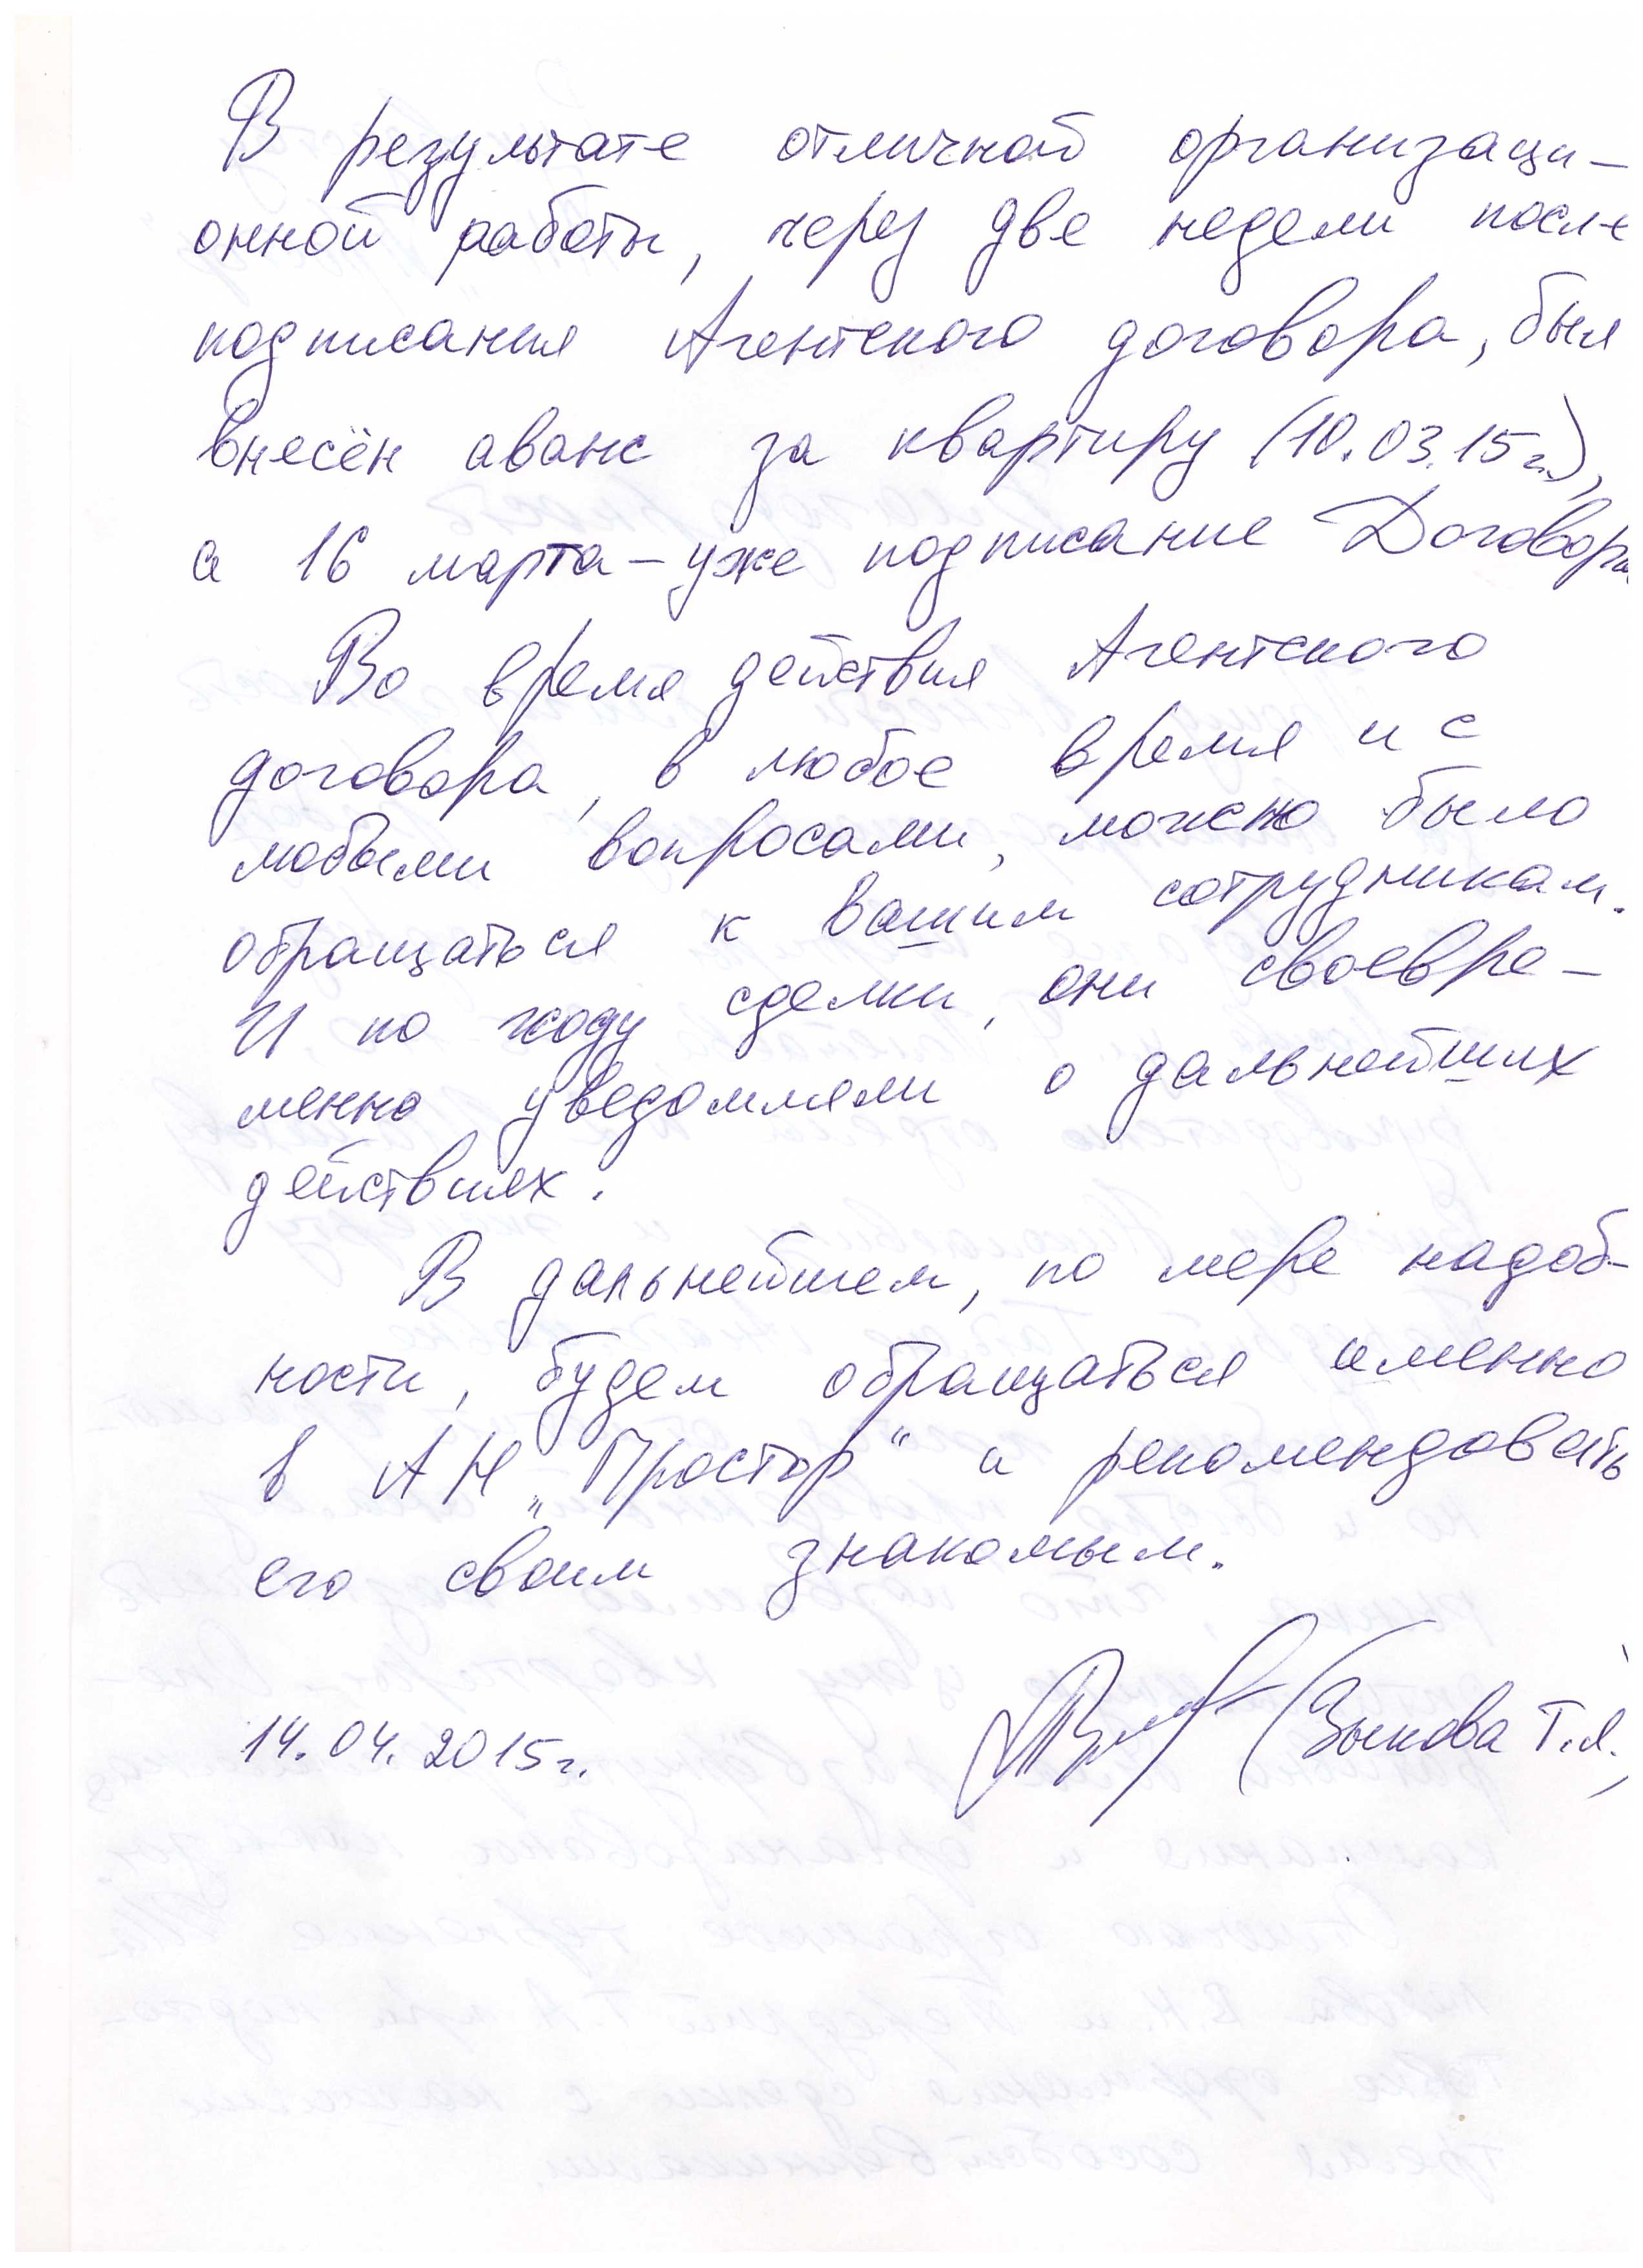 В результате отличной организаци-
онной работы, через две недели после
подписания Агентского договора, был
внесён аванс за квартиру (10.03.15г.),
а 16 марта - уже подписание Договора
Во время действия Агентского
договора, в любое время и с
любыми вопросами, можно было
обращаться к вашим сотрудникам.
И по ходу сделки, они своевре-
менно уведомляли о дальнейших
действиях.
В дальнейшем, по мере надоб-
ности, будем обращаться именно
в АН „Простор“ и рекомендовать
его своим знакомым.
14.04.2015г. (Зыкова Т.Я.)